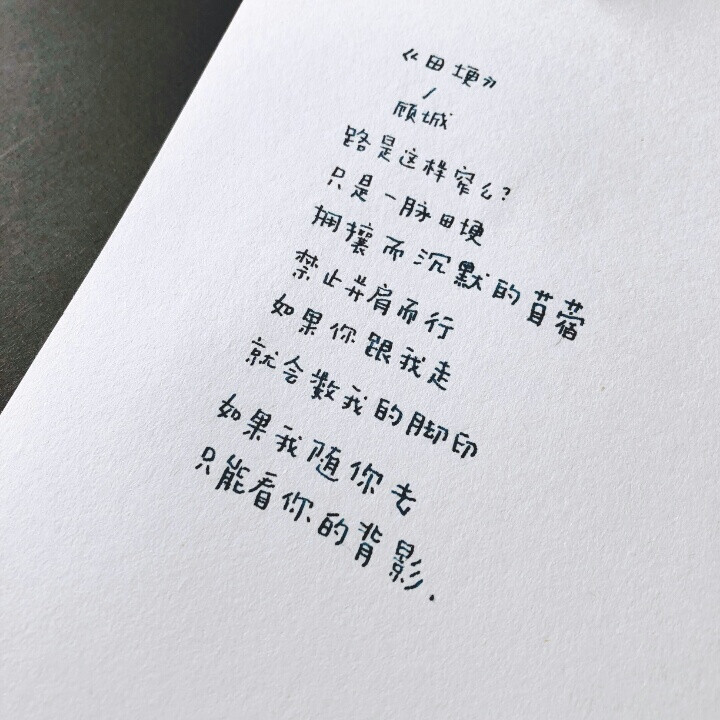 《田埂》
/
顾城
路是这样窄么？
只是一脉田埂
拥攘而沉默的苜蓿
禁止并肩而行
如果你跟我走
就会数我的脚印
如果我随你去
只能看你的背影.